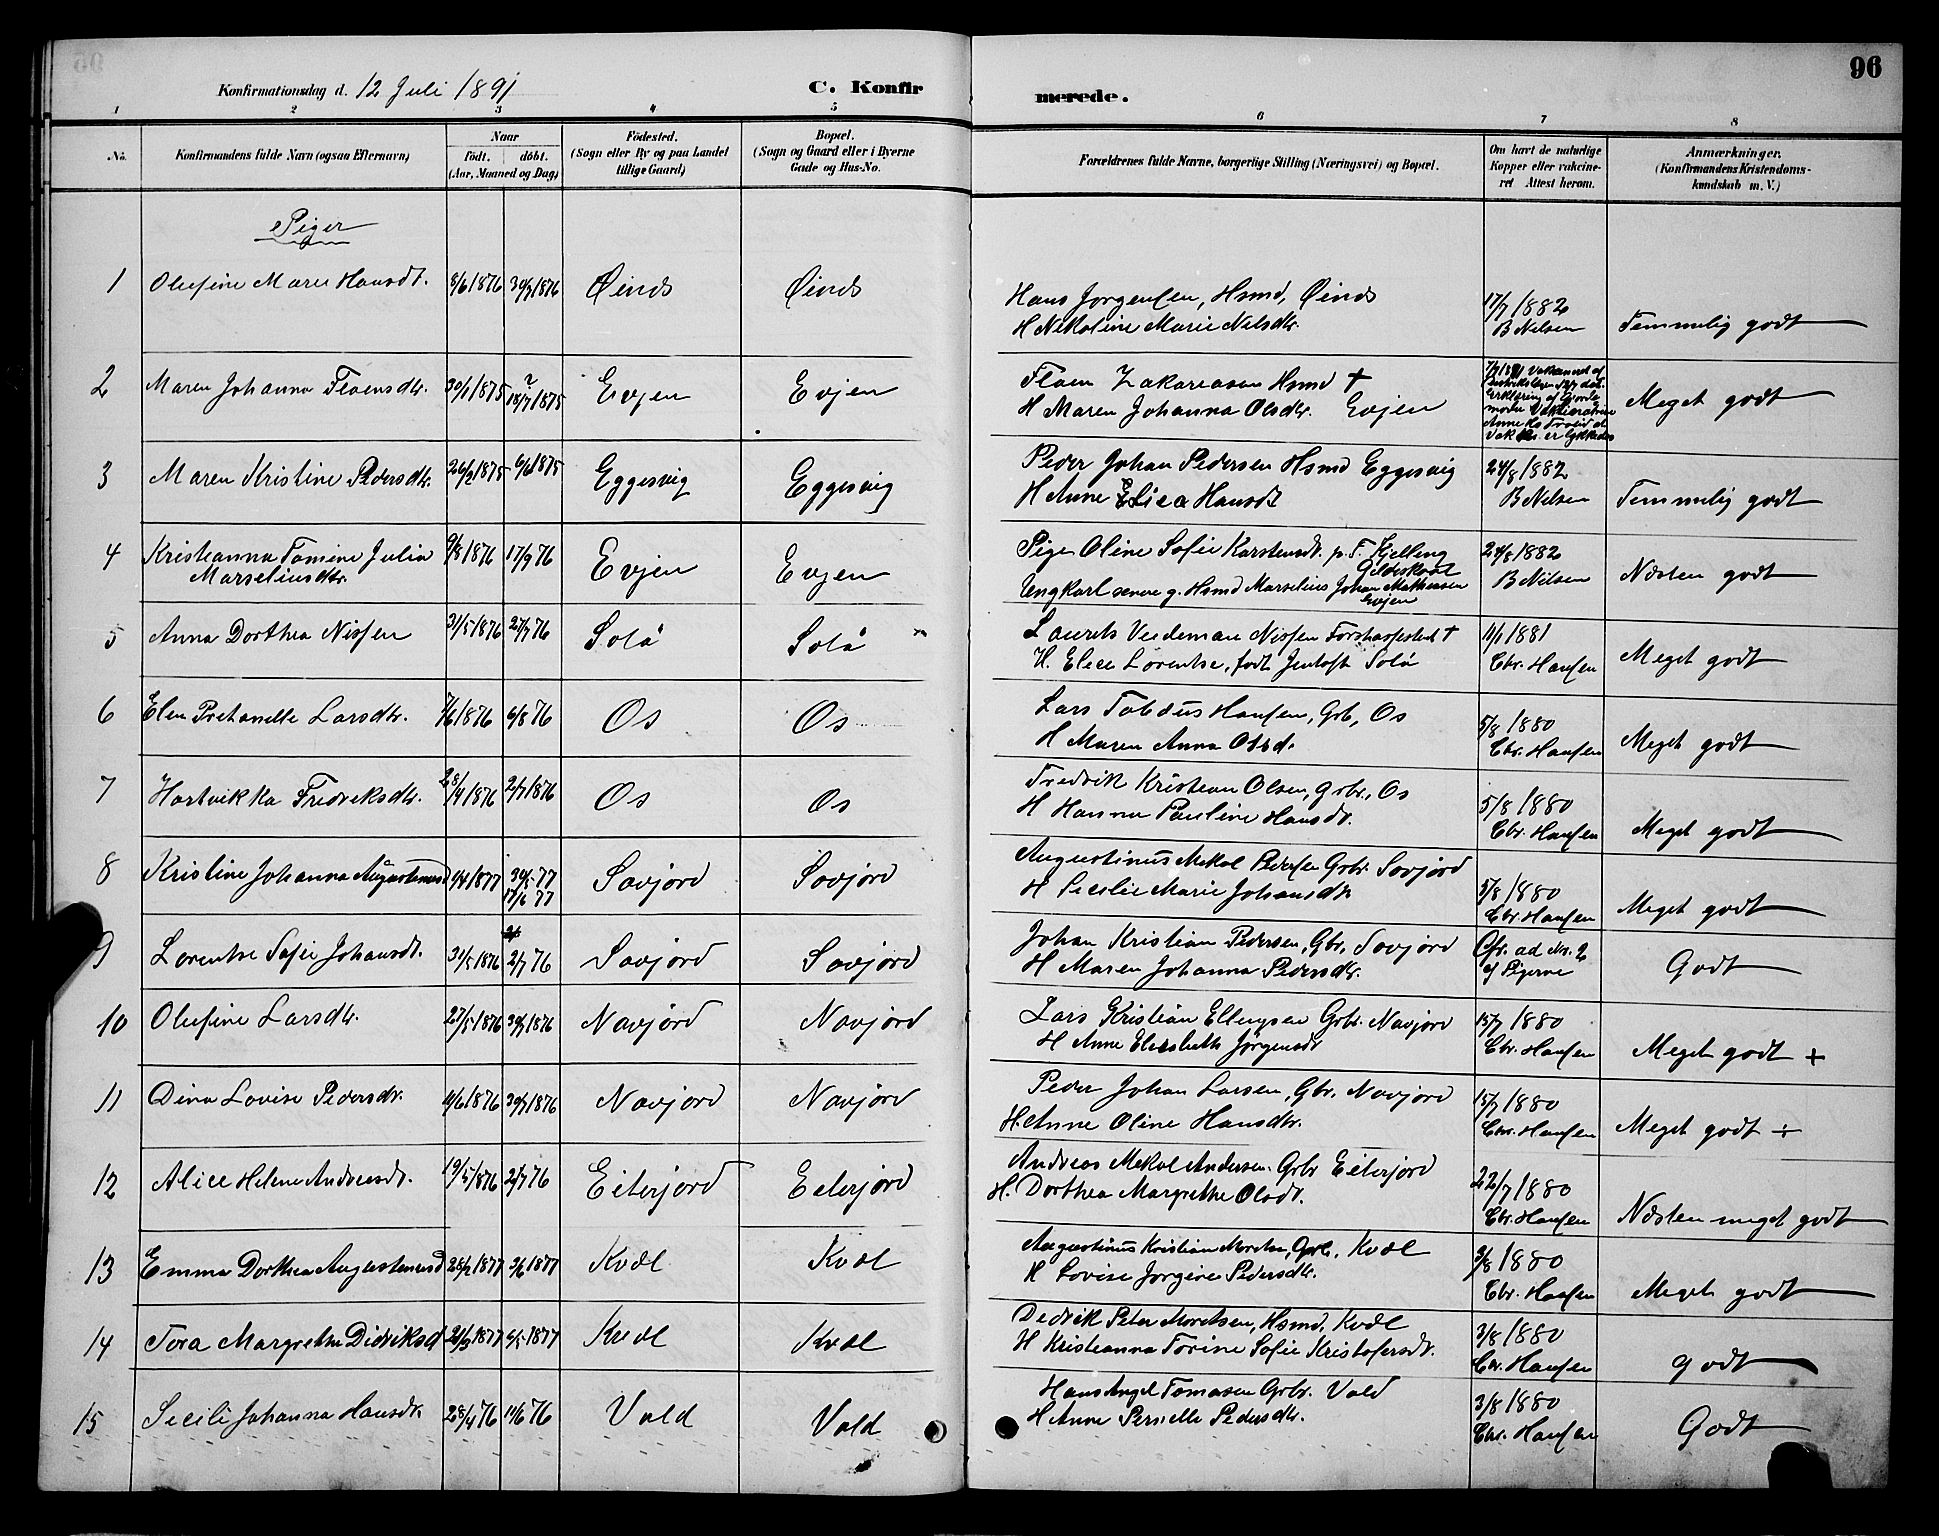 Konfirmationsdag d. 12 Juli 1891
C. Konfirmerede.
96
1 2 3 4 5 6 7 8
No.
Konfirmandens fulde Navn (ogsaa Efternavn)
Naar
födt. döbt.
(Aar, Maaned og Dag)
Födested.
(Sogn eller By og paa Landet
tillige Gaard)
Bopæl.
(Sogn og Gaard eller i Byerne
Gade og Hus-No.
Forældrenes fulde Navne, borgerlige Stilling (Næringsvei) og Bopæl.
Om havt de naturlige
Kopper eller vakcine-
ret Attest herom.
Anmærkninger.
(Konfirmandens Kristendoms-
kundskab m. V.)
Piger
1 Olufine Marie Hansdt. 8/6 1876 30/7 1876 Øinds Øinds
Hans Jørgensen, Hsmd, Øinds
H Nikoline Marie Nilsdtr.
17/7 1882
B Nilsen
Temmelig godt
2 Maren Johanna Floensdtr. 30/1 1875 ? 18/7 1875 Evjen Evjen
Floen Zakariasen Hsmd †
H Maren Johanna Olsdtr. Evjen
Meget godt
3 Maren Kristine Pedersdtr. 26/2 1875 6/6 1875 Eggesvig Eggesvig
Peder Johan Pedersen Hsmd Eggesvig
H Anne Elica Hansdt
24/8 1882
B Nilsen
Temmelig godt
4 Kristianna Tomine Julia
Marseliusdtr.
9/8 1876 17/9 76 Evjen Evjen
Pige Oline Sofie Karstensdt. p. F. Kjelling
Gildeskaal
Ungkarl senere g. Hsmd Marselius Johan Mathiasen
Evjen
24/8 1882
B Nilsen
Næsten godt
5 Anna Dorthea Nissen 31/5 1876 27/7 76 Solø Solø
Laurits Veideman Nissen Forstassistent †
H. Elice Lorentse, født Jentoft Solø
11/1 1881
Chr. Hansen
Meget godt
6 Elen Pretanelle Larsdtr. 7/6 1876 6/8 76 Os Os
Lars Tobias Hansen, Grb, Os
H Maren Anna Olsd.
5/8 1880
Chr. Hansen
Meget godt
7 Hartvikka Fredriksdtr. 28/4 1876 2/7 1876 Os Os
Fredrik Kristian Olsen, Grbr., Os
H Hanna Pauline Hansdt.
5/8 1880
Chr. Hansen
Meget godt
8 Kristine Johanna Augustinusd 1/4 1877 30/5 77
17/6 77
Sovjord Sovjord
Augustinus Mekal Pedersen Grbr Sovjord
H Sicelie Marie Johansdtr
5/8 1880
Chr. Hansen
Meget godt
9 Lorentse Sofie Johansdt. 31/5 1876 2/7 76 Sovjord Sovjord
Johan Kristian Pedersen, Gbr, Sovjord
H Maren Johanna Pedersdtr.
Cfr. ad No. 2
af Pigerne
Godt
10 Olufine Larsdtr. 27/5 1876 30/7 1876 Novjord Novjord
Lars Kristian Ellingsen Grbr. Novjord
H Anne Elisabeth Jørgensdt
15/7 1880
Chr. Hansen
Meget godt +
11 Dina Lovise Pedersdtr. 4/6 1876 30/7 1876 Novjord Novjord
Peder Johan Larsen, Gbr, Novjord
H. Anne Oline Hansdtr.
15/7 1880
Chr. Hansen
Meget godt ÷
12 Alice Helene Andreasdt. 19/5 1876 2/7 76 Eiterjord Eiterjord
Andreas Mekal Andersen Grbr Eiterjord
H. Dorthea Margrethe Olsdt.
22/7 1880
Chr. Hansen
Næsten meget godt
13 Emma Dorthea Augustinusd 28/2 1877 3/6 1877 Kvæl Kvæl
Augustinus Kristian Moritsen, Grb., Kvæl
H Lovise Jørgine Pedersdtr.
3/8 1880
Chr. Hansen
Meget godt
14 Tora Margrethe Didriksd 21/3 1877 6/5 1877 Kvæl Kvæl
Dedrik Peter Moritsen, Hsmd, Kvæl
H Kristianna Torine Sofie Kristofersdt.
3/8 1880
Chr. Hansen
godt
15 Sicili Johanna Hansdtr 28/4 76 11/6 76 Vold Vold
Hans Angel Tomasen Grbr. Vold
H Anne Pernelle Pedersdtr.
3/8 1880
Chr. Hansen
Godt